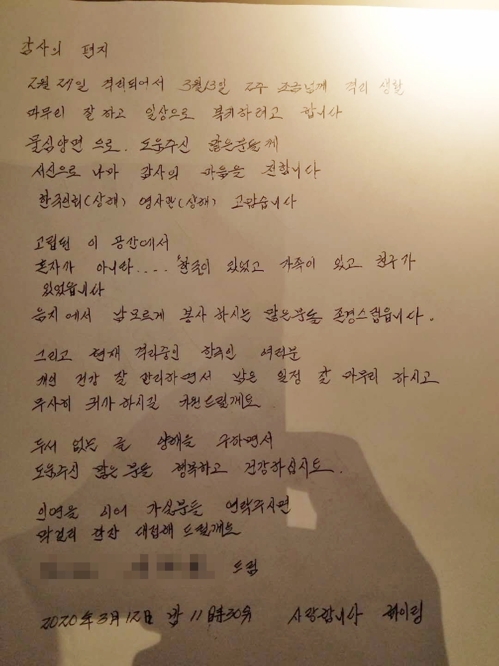 감사의 편지
2월 27일 격리되어서 3월13일 2주 조금넘게 격리 생활
마무리 잘 하고 일상으로 복귀하려고 합니다
물심양면으로 도움주신 많은분들께
서신으로 나마 감사의 마음을 전합니다
한국인회(상해) 영사관(상해) 고맙습니다
고립된 이 공간에서
혼자가 아니라.... 한국이 있었고 가족이 있고 친구가
있었습니다
음지에서 남모르게 봉사 하시는 많은분들 존경스럽습니다.
그리고 현재 격리중인 한국인 여러분
개인 건강 잘 관리하면서 남은 일정 잘 마무리 하시고
무사히 귀가하시길 기원드릴게요
두서 없는 글 양해를 구하면서
도움주신 많은 분들 행복하고 건강하십시요.
의연을 시어 가실분들 연락주시면
막걸리 한잔 대접해 드릴게요
드림
2020年3月12日 밤 11時30分 사랑합니다